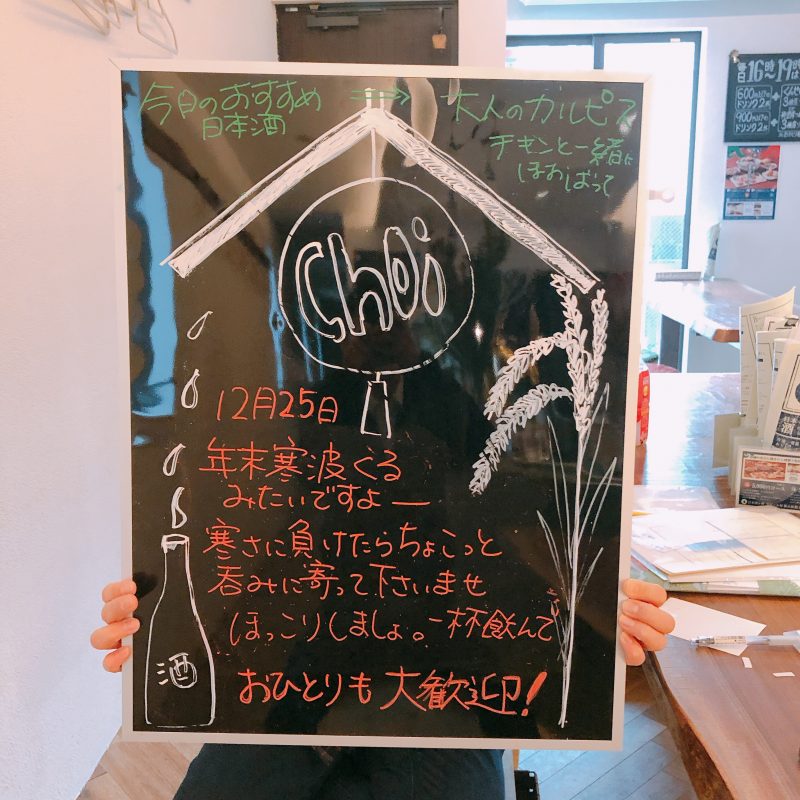 今日のおすすめ
日本酒
大人のカルピス
チキンと一緒に
ほおばって
Choi
12月25日
年末寒波くる
みたいですよー
寒さに負けたらちょこっと
呑みに寄って下さいませ
ほっこりしましょ。一杯飲んで
おひとりも大歓迎!
酒
毎日16時~19時
600
ドリンク2杯
900
ドリンク2杯